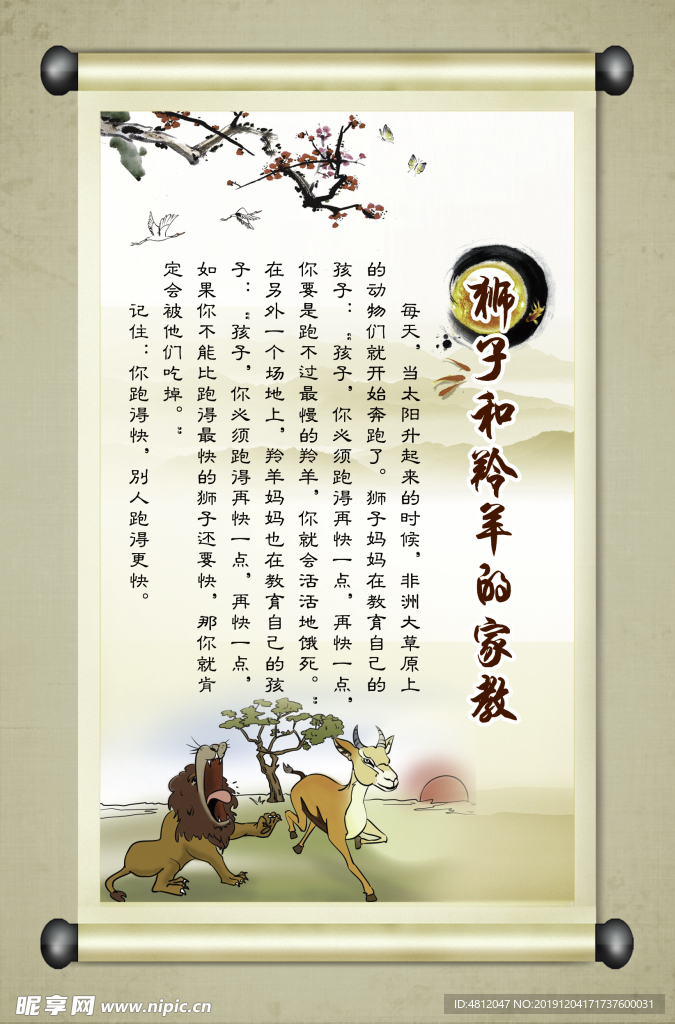 狮子和羚羊的家教
每天，当太阳升起来的时候，非洲大草原上
的动物们就开始奔跑了。狮子妈妈在教育自己的
孩子：“孩子，你必须跑得再快一点，再快一点，
你要是跑不过最慢的羚羊，你就会活活地饿死。”
在另外一个场地上，羚羊妈妈也在教育自己的孩
子：“孩子，你必须跑得再快一点，再快一点，
如果你不能比跑得最快的狮子还要快，那你就肯
定会被他们吃掉。”
记住：你跑得快，别人跑得更快。
昵享网 www.nipic.cn
ID:4812047 NO:20191204171737600031